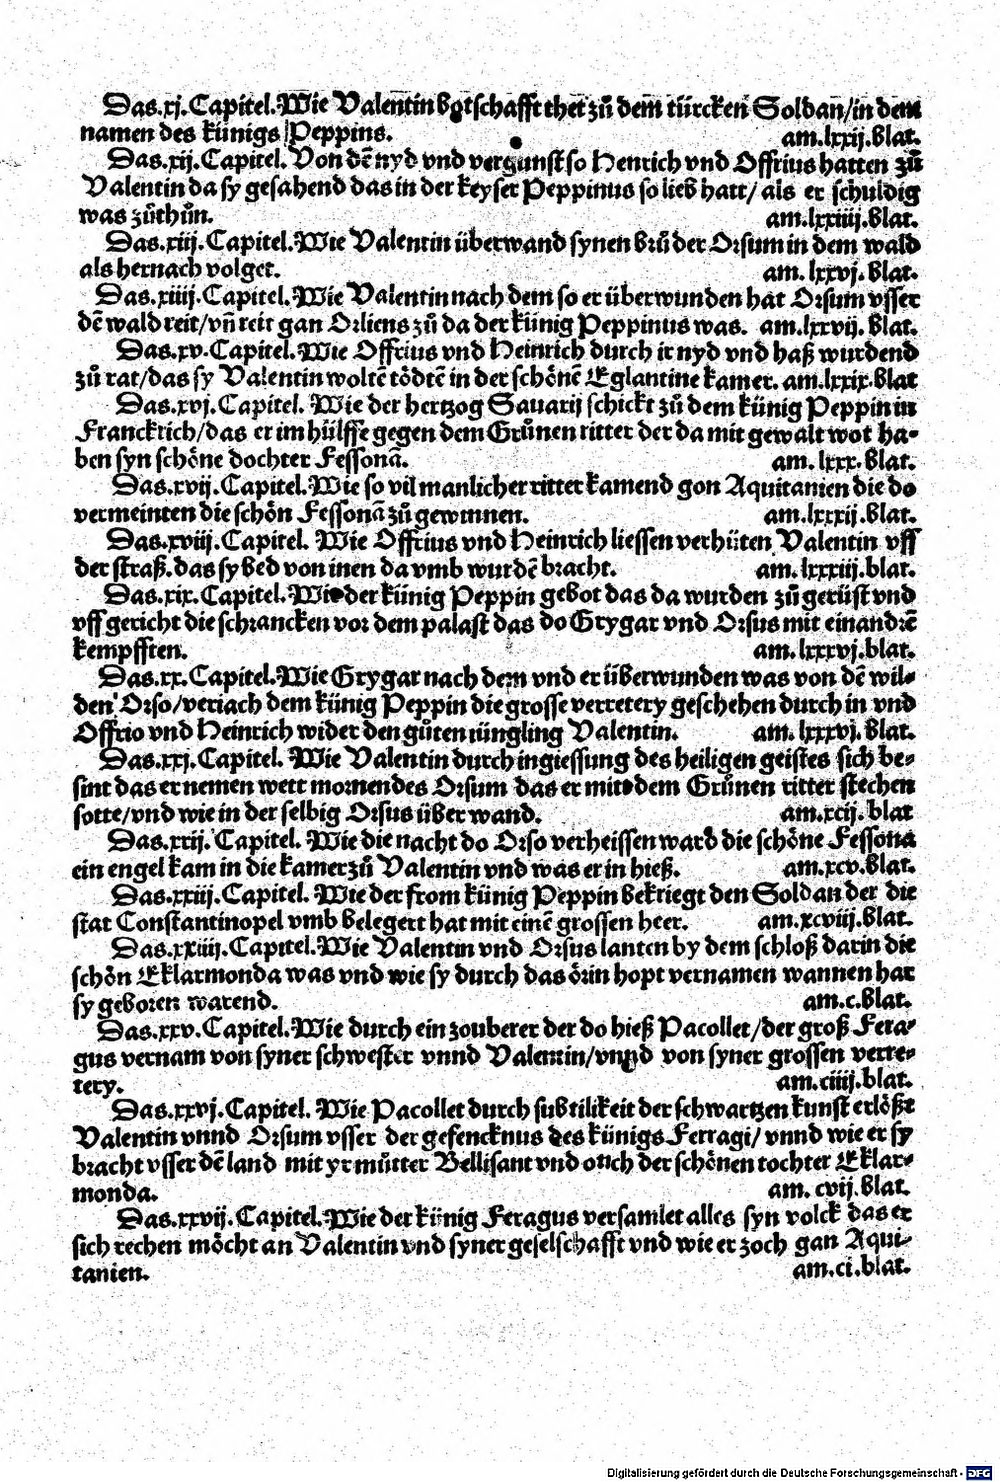 Das.xj.Capitel.Wie Valentin botschafft thet zů dem türcken Soldan/in dem
namen des künigs Peppins. am.lxxij.blat.
Das.xij.Capitel. Von dē nyd vnd vergunst so Henrich vnd Offrius hatten zů
Valentin da sy gesahend das in der keyser Peppinus so lieb hatt/ als er schuldig
was zůthůn. am.lxxiiij.blat.
Das.xiij.Capitel.Wie Valentin überwand synen brůder Orsum in dem wald
als hernach volget. am. lxxvj. blat.
Das.xiiij.Capitel.Wie Valentin nach dem so er überwunden hat Orsum vsser
dē wald reit/vn̄ reit gan Orliens zů da der künig Peppinus was. am.lxxvij. blat.
Das.xv.Capitel.Wie Offrius vnd Heinrich durch ir nyd vnd haß wurdend
zů rat/das sy Valentin woltē tödtē in der schönē Eglantine kamer. am.lxxix.blat
Das.xvj.Capitel. Wie der hertzog Sauarij schickt zů dem künig Peppin in
Franckrich/das er im hülffe gegen dem Grůnen ritter der da mit gewalt wot ha-
ben syn schöne dochter Fessonā. am. lxxx. blat.
Das.xvij.Capitel.Wie so vil manlicher ritter kamend gon Aquitanien die do
vermeinten die schön Fessonā zů gewinnen. am.lxxxij.blat.
Das.xviij.Capitel. Wie Offrius vnd Heinrich liessen verhüten Valentin vff
der straß.das sy bed von inen da vmb wurdē bracht. am. lxxxiij.blat.
Das.xix.Capitel.Wie der künig Peppin gebot das da wurden zů gerüst vnd
vff gericht die schrancken vor dem palast das do Grygar vnd Orsus mit einandrē
kempfften. am. lxxxvj.blat.
Das.xx.Capitel.Wie Grygar nach dem vnd er überwunden was von dē wil-
den Orso/veriach dem künig Peppin die grosse verretery geschehen durch in vnd
Offrio vnd Heinrich wider den gůten iüngling Valentin. am. lxxxvj. blat.
Das.xxj.Capitel. Wie Valentin durch ingiessung des heiligen geistes sich be-
sint das er nemen wett mornendes Orsum das er mit dem Grůnen ritter stechen
sotte/vnd wie in der selbig Orsus über wand. am.xcij.blat
Das.xxij.Capitel. Wie die nacht do Orso verheissen ward die schöne Fessona
ein engel kam in die kamer zů Valentin vnd was er in hieß. am.xcv.blat.
Das.xxiij.Capitel. Wie der from künig Peppin bekriegt den Soldan der die
stat Constantinopel vmb belegert hat mit einē grossen heer. am.xcviij.blat.
Das.xxiiij.Capitel.Wie Valentin vnd Orsus lanten by dem schloß darin die
schön Eklarmonda was vnd wie sy durch das örin hopt vernamen wannen har
sy geboren warend. am.c.blat.
Das.xxv.Capitel.Wie durch ein zouberer der do hieß Pacollet/der groß Fera-
gus vernam von syner schwester vnnd Valentin/vnnd von syner grossen verre-
tery. am.ciiij.blat.
Das.xxvj.Capitel. Wie Pacollet durch subtilikeit der schwartzen kunst erlößt
Valentin vnnd Orsum vsser der gefencknus des künigs Ferragi/ vnnd wie er sy
bracht vsser dē land mit yr můtter Bellisant vnd ouch der schönen tochter Eklar-
monda. am. cvij.blat.
Das.xxvij.Capitel.Wie der künig Feragus versamlet alles syn volck das er
sich rechen möcht an Valentin vnd syner geselschafft vnd wie er zoch gan Aqui-
tanien. am.ci.blat.
Digitalisierung gefördert durch die Deutsche Forschungsgemeinschaft - DFG